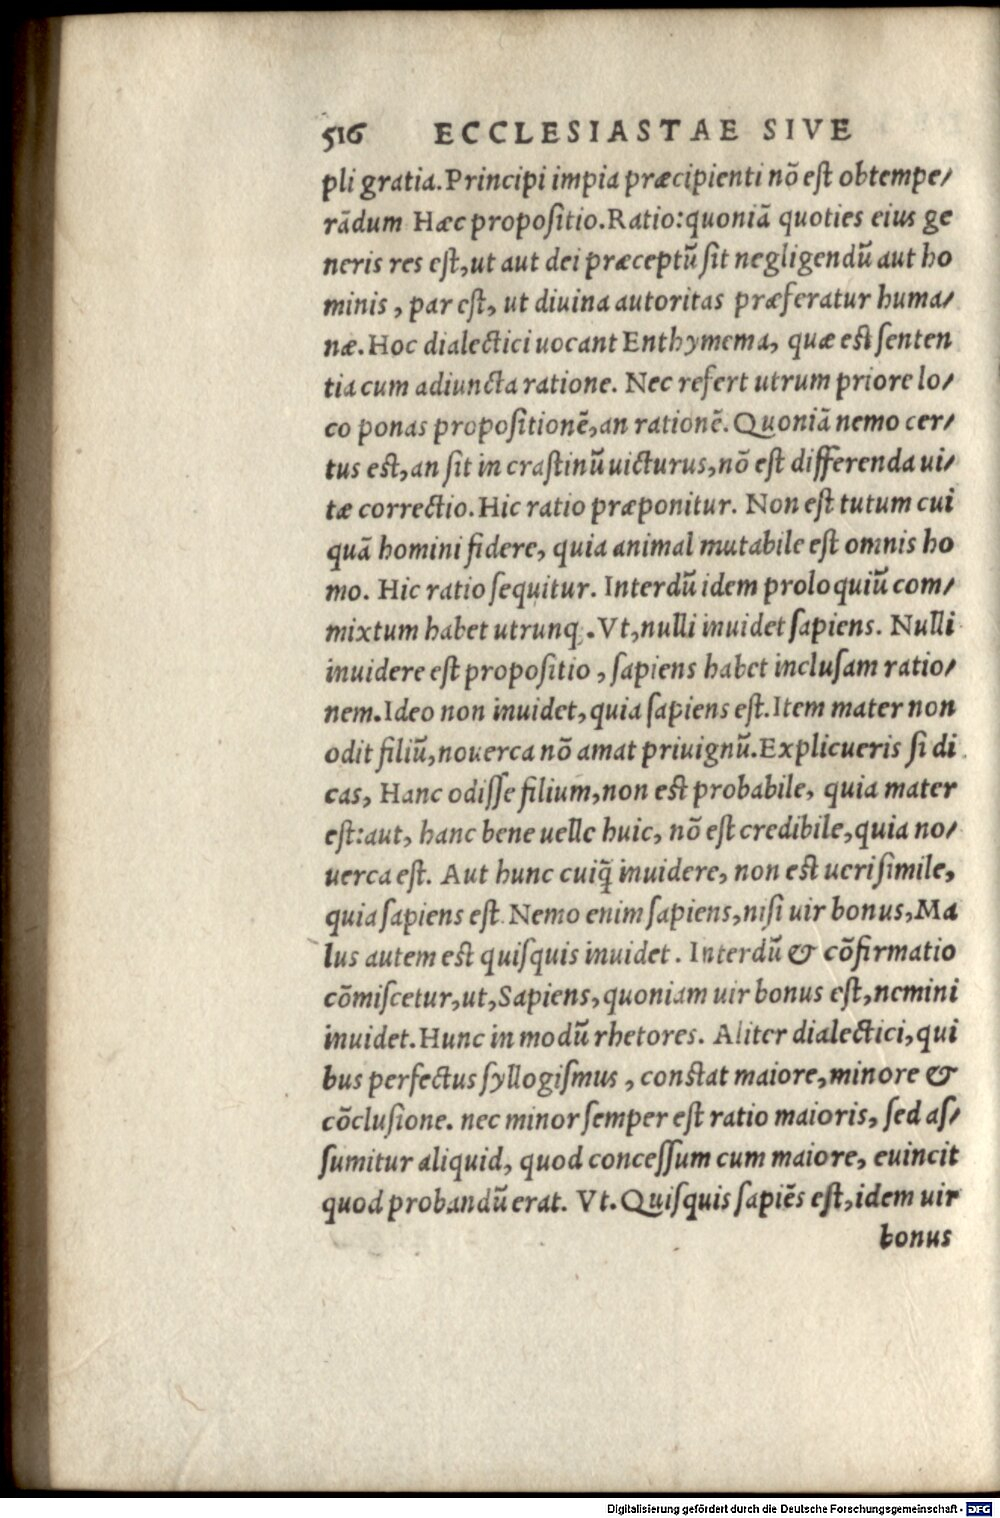 516 ECCLESIASTAE SIVE
pli gratia. Principi impia præcipienti nõ eſt obtempe/
rãdum Hæc propoſitio. Ratio: quoniã quoties eius ge
neris res eſt, ut aut dei præceptũ ſit negligendũ aut ho
minis, par eſt, ut diuina autoritas præferatur huma/
næ. Hoc dialectici uocant Enthymema, quæ eſt ſenten
tia cum adiuncta ratione. Nec refert utrum priore lo/
co ponas propoſitionẽ, an rationẽ. Quoniã nemo cer/
tus eſt, an ſit in craſtinũ uicturus, nõ eſt differenda ui/
tæ correctio. Hic ratio præponitur. Non eſt tutum cui
quã homini fidere, quia animal mutabile eſt omnis ho
mo. Hic ratio ſequitur. Interdũ idem proloquiũ com/
mixtum habet utrunq;. Vt, nulli inuidet ſapiens. Nulli
inuidere eſt propoſitio, ſapiens habet incluſam ratio/
nem. Ideo non inuidet, quia ſapiens eſt. Item mater non
odit filiũ, nouerca nõ amat priuignũ. Explicueris ſi di
cas, Hanc odiſſe filium, non eſt probabile, quia mater
eſt: aut, hanc bene uelle huic, nõ eſt credibile, quia no/
uerca eſt. Aut hunc cuiq̃ inuidere, non eſt ueriſimile,
quia ſapiens eſt. Nemo enim ſapiens, niſi uir bonus, Ma
lus autem eſt quiſquis inuidet. Interdũ & cõfirmatio
cõmiſcetur, ut, Sapiens, quoniam uir bonus eſt, nemini
inuidet. Hunc in modũ rhetores. Aliter dialectici, qui
bus perfectus ſyllogiſmus, conſtat maiore, minore &
cõcluſione. nec minor ſemper eſt ratio maioris, ſed aſ/
ſumitur aliquid, quod conceſſum cum maiore, euincit
quod probandũ erat. Vt. Quiſquis ſapiẽs eſt, idem uir
bonus
Digitalisierung gefördert durch die Deutsche Forschungsgemeinschaft - DFG